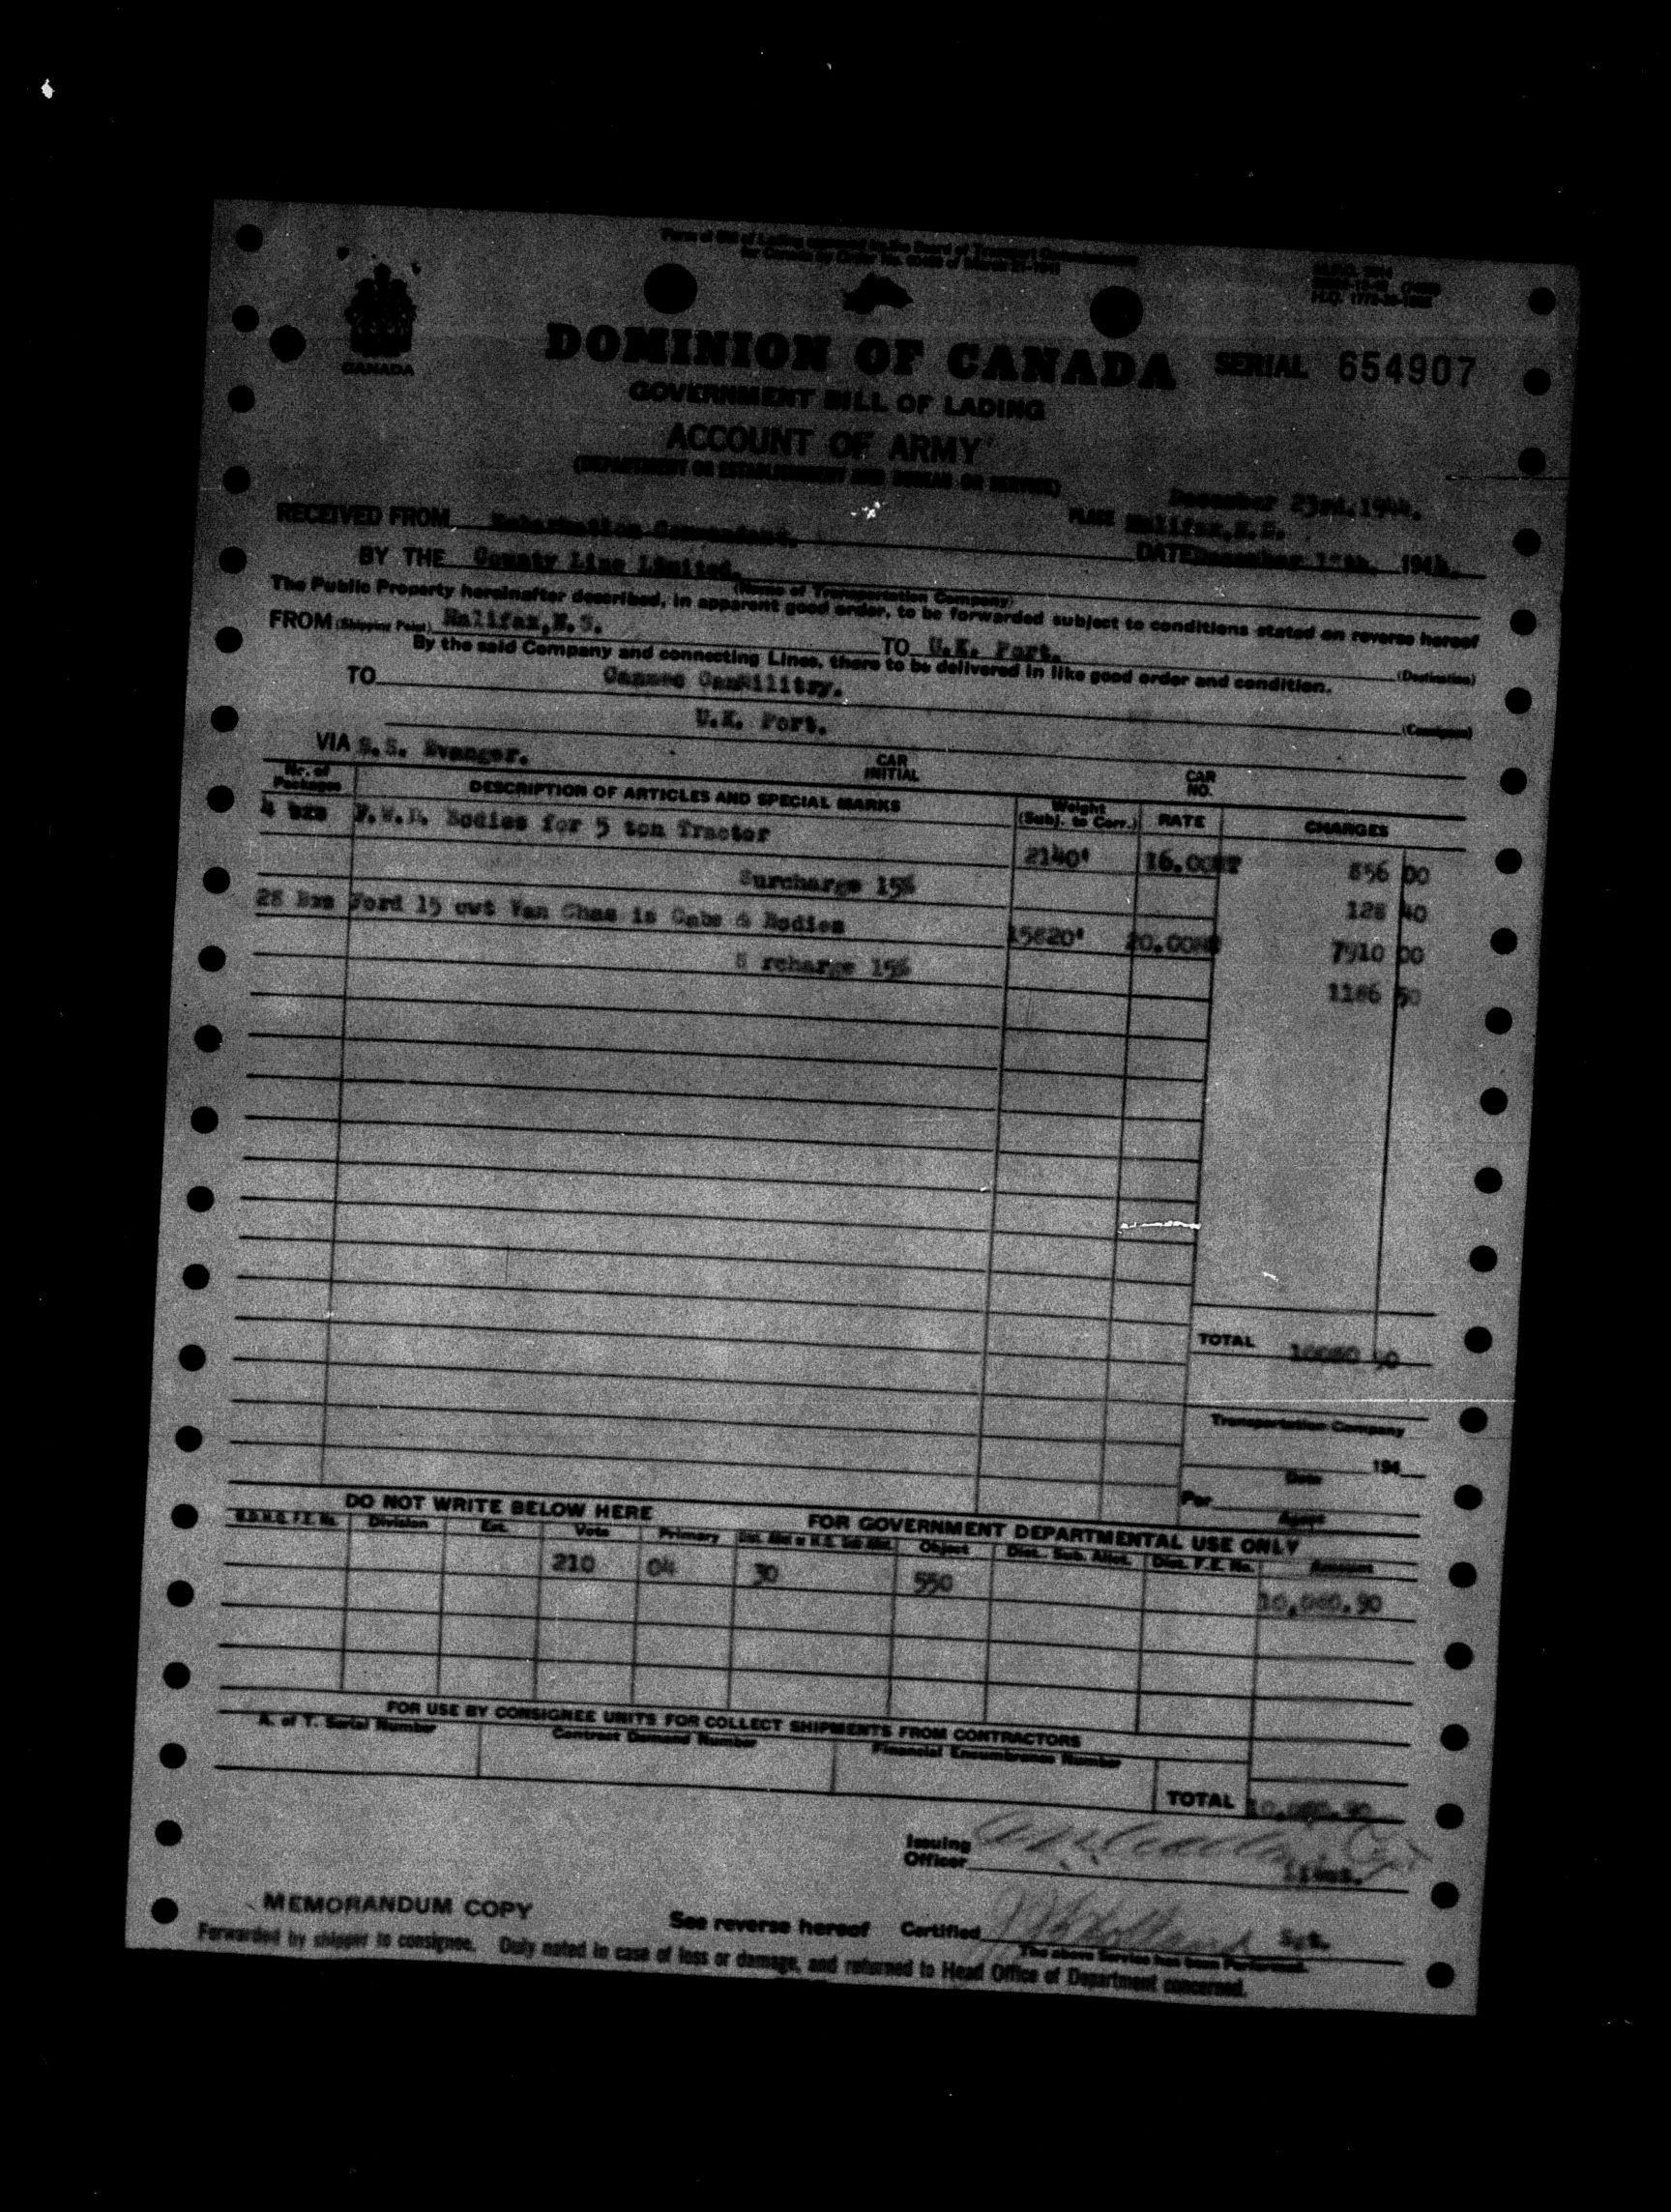 Form of Bill of Lading approved by the Board of Transport Commissioners
for Canada by Order No. of March 1941
CANADA
DOMINION OF CANADA SERIAL 654907
GOVERNMENT BILL OF LADING
ACCOUNT OF ARMY
(DEPARTMENT OR ESTABLISHMENT AND BUREAU OR SERVICE)
December 23rd. 1944.
RECEIVED FROM Embarkation Comendant. PLACE Halifax, N.S.
BY THE County Line Limited. DATE December 194
(Name of Transportation Company)
The Public Property hereinafter described, in apparent good order, to be forwarded subject to conditions stated on reverse hereof
FROM (Shipping Point) Halifax, N.S. TO U.K. Port. (Destination)
By the said Company and connecting Lines, there to be delivered in like good order and condition.
TO Canmilitry. (Consignee)
U.K. Port.
VIA S.S. Evanger. CAR INITIAL CAR NO.
Nr. of Packages DESCRIPTION OF ARTICLES AND SPECIAL MARKS Weight (Subj. to Corr.) RATE CHARGES
4 bxs F.W.D. Bodies for 5 ton Tractor 2140' 16.00 856 00
Surcharge 15% 128 40
28 Bxs Ford 15 cwt Van Chas is Cabs & Bodies 15820' 20.00 7910 00
S rcharge 15% 1186 50
TOTAL 10080 90
Transportation Company
194
Date
Per
Agent
DO NOT WRITE BELOW HERE FOR GOVERNMENT DEPARTMENTAL USE ONLY
N.D.H.Q. F.E. No. Division Est. Vote Primary Dist. Allot or H.Q. Sub Allot. Object Dist. Sub. Allot. Dist. F.E. No. Amount
210 04 30 550 10,080.90
FOR USE BY CONSIGNEE UNITS FOR COLLECT SHIPMENTS FROM CONTRACTORS
A. of T. Serial Number Contract Demand Number Financial Encumbrance Number
TOTAL 10,080.90
Issuing
Officer
MEMORANDUM COPY See reverse hereof Certified Holland Sgt.
The above Service has been Performed.
Forwarded by shipper to consignee. Duly noted in case of loss or damage, and returned to Head Office of Department concerned.